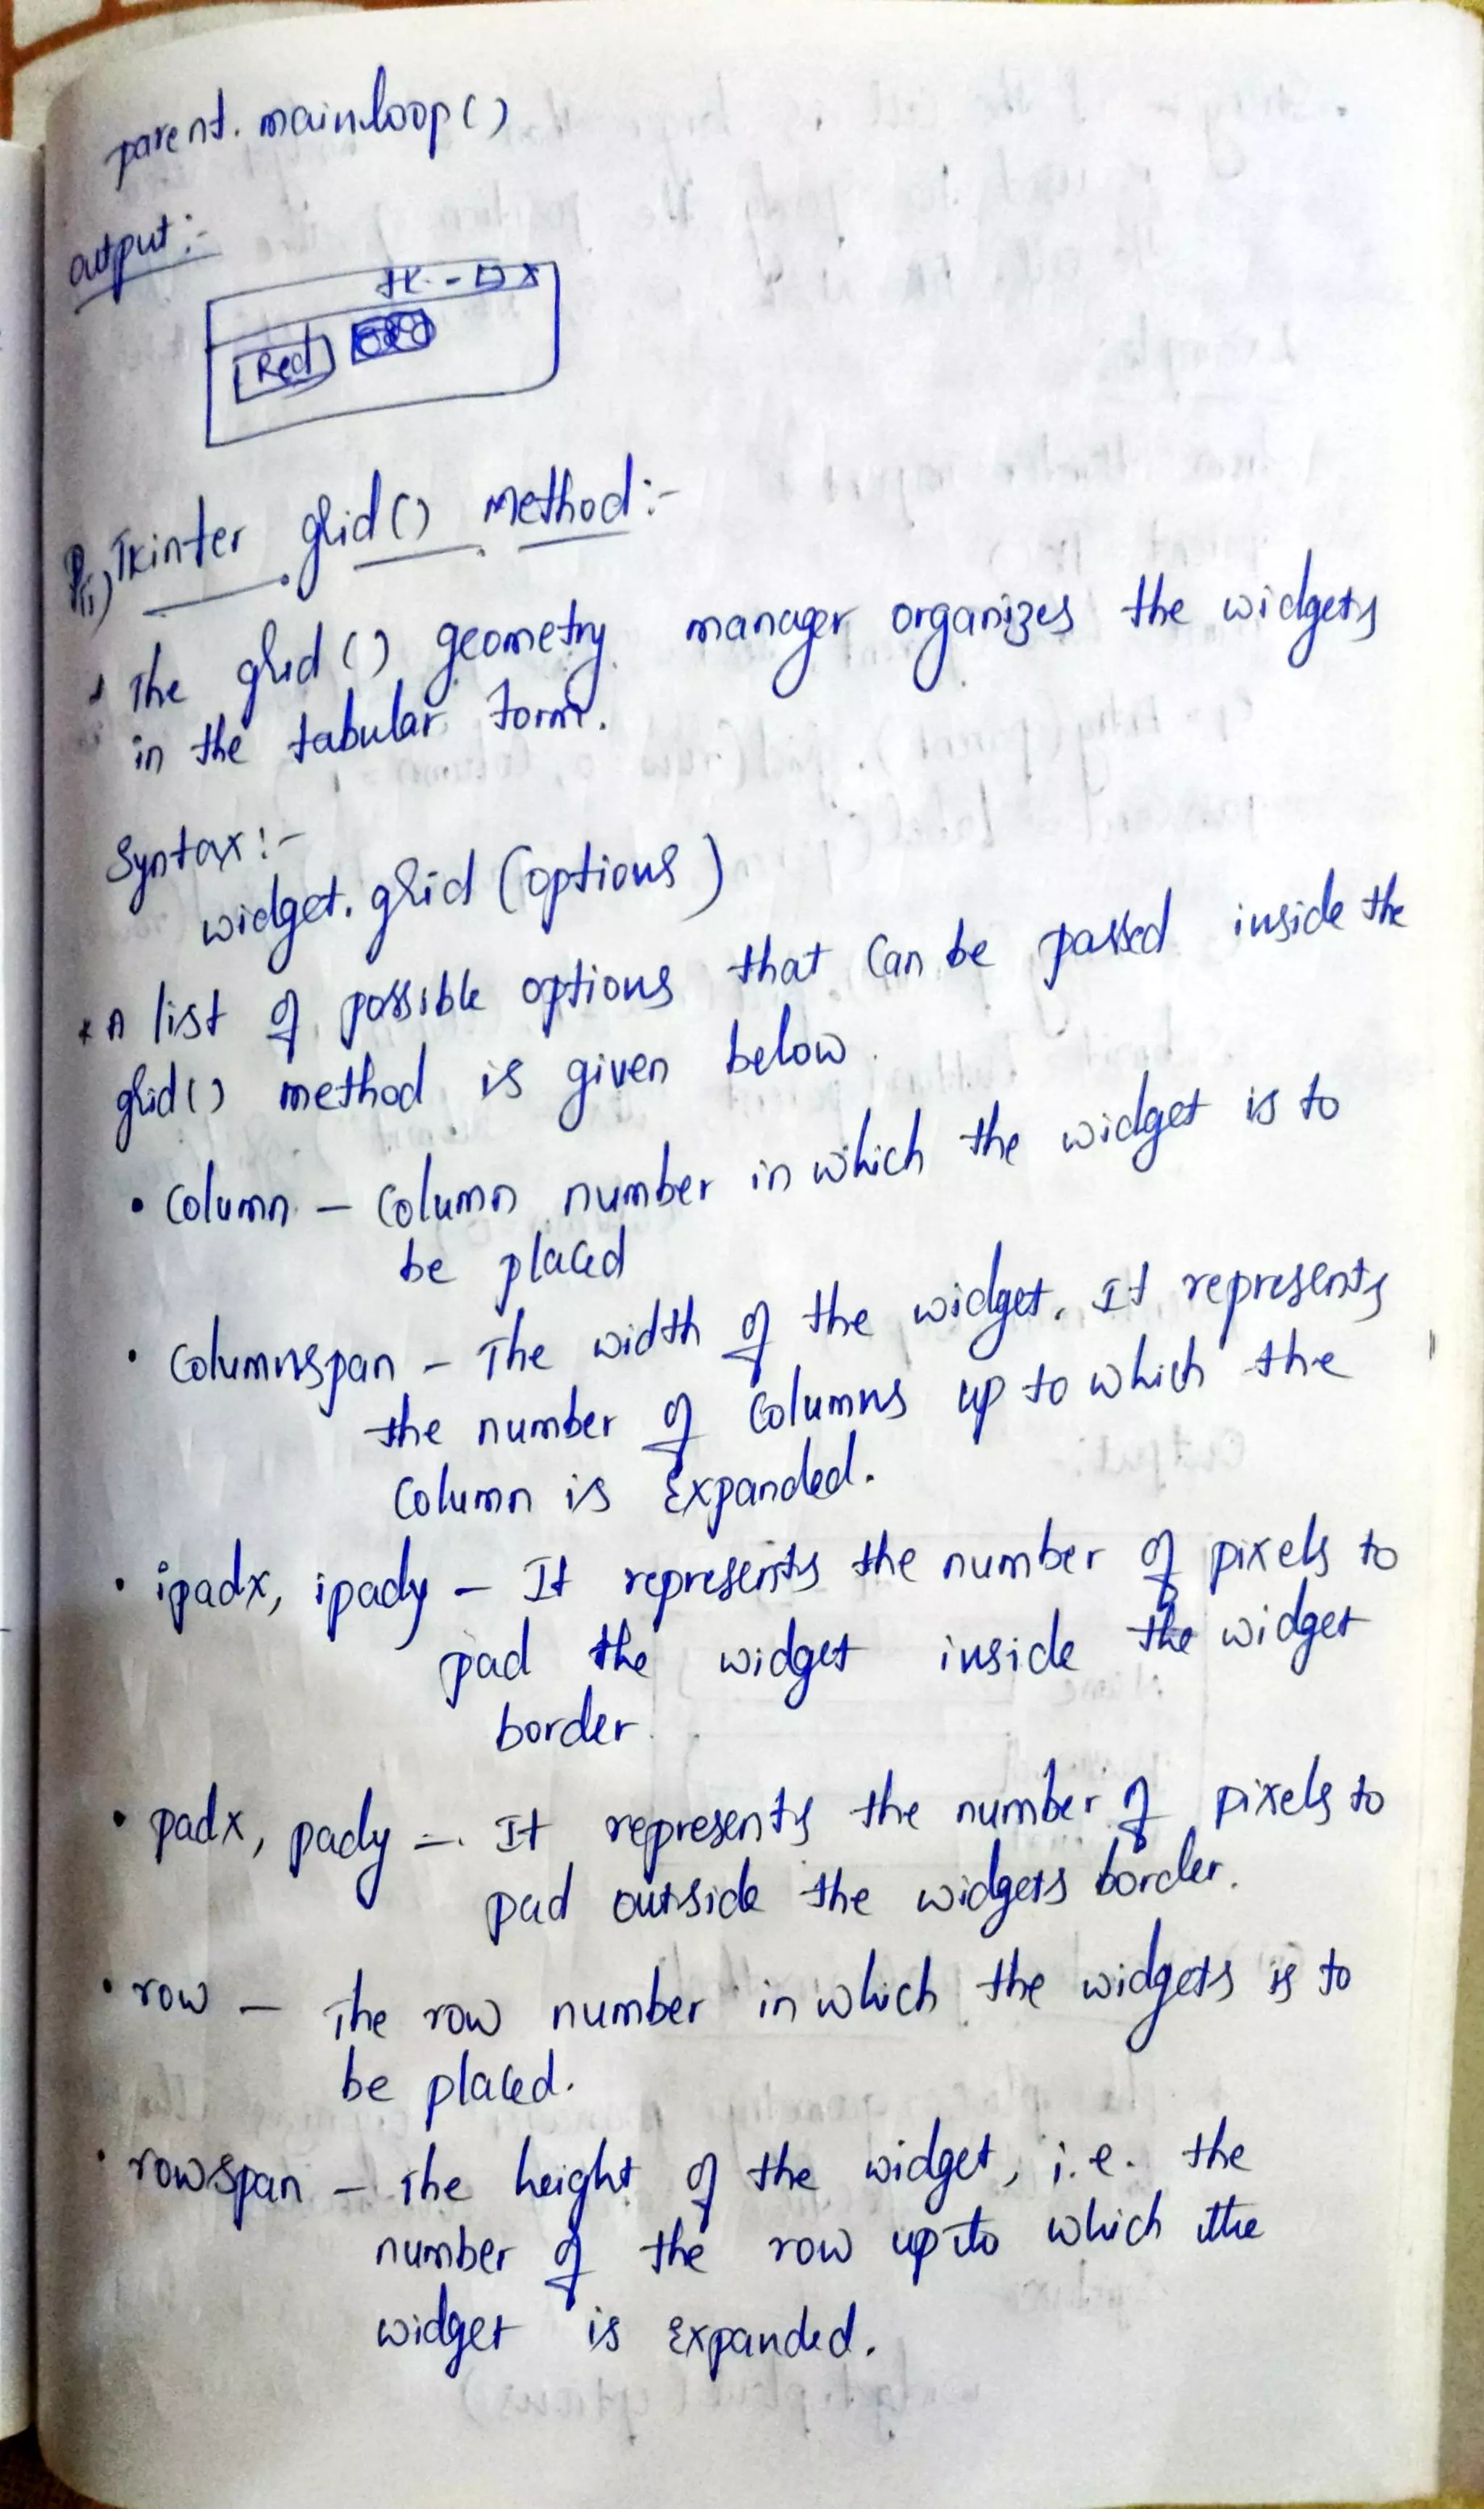 parent.mainloop()
output:-
tk - □ x
Red
ii) Tkinter grid() method:-
* The grid() geometry manager organizes the widgets
in the tabular form.
Syntax:-
widget.grid (options)
* A list of possible options that can be passed inside the
grid() method is given below.
• Column – Column number in which the widget is to
be placed
• Columnspan – The width of the widget. It represents
the number of columns up to which the
column is expanded.
• ipadx, ipady – It represents the number of pixels to
pad the widget inside the widget
border.
• padx, pady – It represents the number of pixels to
pad outside the widgets border.
• row – The row number in which the widgets is to
be placed.
• rowspan – The height of the widget, i.e. the
number of the row up to which the
widget is expanded.